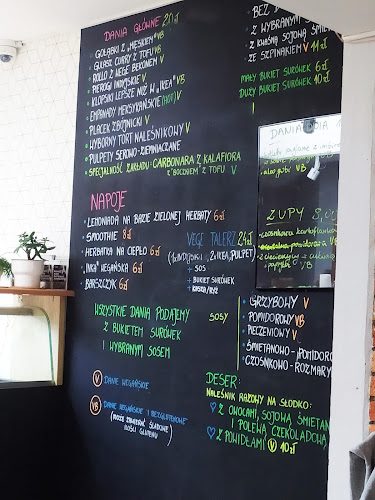 DANIA GŁÓWNE 20 zł
• GOŁĄBKI Z „MĘSKIEM" VB
• GLASS CURRY Z TOFU VB
• ROLLO Z WEGE BEKONEM V
• PIEROGI INDYJSKIE V
• KLOPSIKI LEPSZE NIŻ W „IKEA" VB
• EMPANADY MEKSYKAŃSKIE (HOT) V
• PLACEK ZBÓJNICKI V
• WYBORNY TORT NALEŚNIKOWY V
• PULPETY SEROWO-ZIEMNIACZANE
• SPECJALNOŚĆ ZAKŁADU - CARBONARA Z KALAFIORA
Z "BOCZKIEM" Z TOFU V
NAPOJE
• LEMONIADA NA BAZIE ZIELONEJ HERBATY 6 zł
• SMOOTHIE 8 zł
• HERBATKA NA CIEPŁO 6 zł
• „INKA" WEGAŃSKA 6 zł
• BARSZCZYK 6 zł
VEGE TALERZ 24 zł
+ SOS
+ BUKIET SURÓWEK
+ KASZA/RYŻ
WSZYSTKIE DANIA PODAJEMY
Z BUKIETEM SURÓWEK
I WYBRANYM SOSEM
V DANIE WEGAŃSKIE
VB DANIE WEGAŃSKIE I BEZGLUTENOWE*
(MOŻE ZAWIERAĆ ŚLADOWE
ILOŚCI GLUTENU)
BEZ
Z WYBRANYM
Z KWAŚNĄ SOJOWĄ ŚMIE
ZE SZPINAKIEM V 11 zł
MAŁY BUKIET SURÓWEK 6 zł
DUŻY BUKIET SURÓWEK 10 zł
DANIA DNIA
VB
ZUPY
VB
SOSY
• GRZYBOWY V
• POMIDOROWY VB
• PIECZENIOWY V
• ŚMIETANOWO-POMIDORO
• CZOSNKOWO-ROZMARY
DESER:
NALEŚNIK RAZOWY NA SŁODKO:
Z OWOCAMI, SOJOWĄ ŚMIETAN
I POLEWĄ CZEKOLADOWĄ
Z POWIDŁAMI V 10 zł